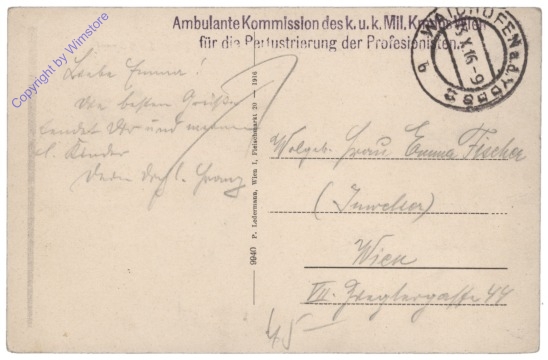 Ambulante Kommission des k. u. k. Mil. Kommanden
für die Perlustrierung der Profesionisten.
WAIDHOFEN a.d. YBBS
X.16-9
b
Copyright by Wimstore
Liebe Emma!
Die besten Grüße
sendet Dir und
Kinder
Dein Franz
9940 P. Ledermann, Wien I, Fleischmarkt 20 — 1916
Wolgeb. Frau Emma Fischer
(Juwelier)
Wien
VII. Zieglergasse 44
45 —